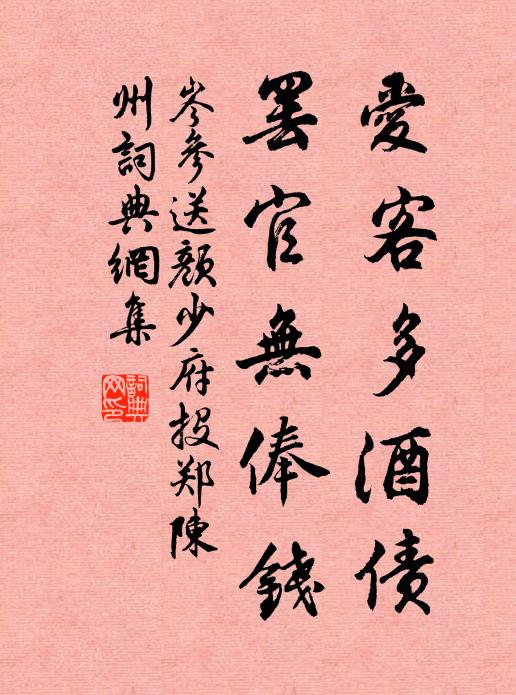 愛客多酒债
罢官無俸錢
岑參送顏少府投郑陳
州詞典網集
詞典网印